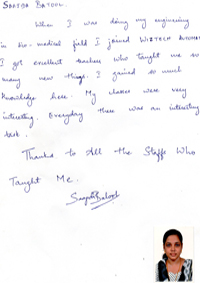 SAATGA BATOOL.
When I was doing my engineering
in bio-medical field I joined WIZTECH AUTOMATION
I got excellent teachers who taught me so
many new things. I gained so much
knowledge here. My classes were very
interesting. Everyday there was an interesting
task.
Thanks to All the Staffs Who
Taught Me.